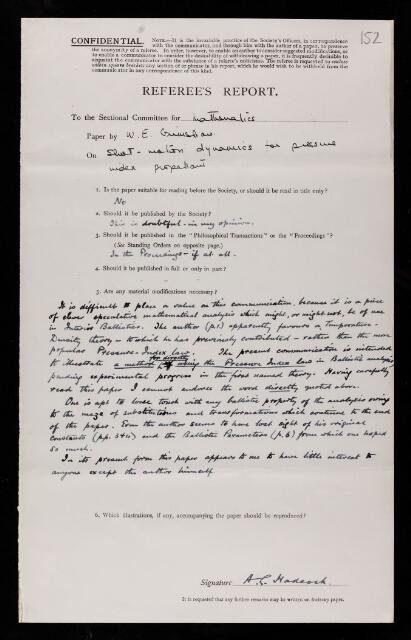 152
CONFIDENTIAL. NOTE.—It is the invariable practice of the Society's Officers, in correspondence
with the communicator, and through him with the author of a paper, to preserve
the anonymity of a referee. In order, however, to enable an author to consider suggested modifications, or
to enable a communicator to consider the desirability of withdrawing a paper, it is frequently desirable to
acquaint the communicator with the substance of a referee's criticisms. The referee is requested to enclose
within square brackets any section of or phrase in his report, which he would wish to be withheld from the
communicator in any correspondence of this kind.
REFEREE'S REPORT.
To the Sectional Committee for Mathematics
Paper by W. E.
On Shot-motion dynamics for pressure
index propellant
1. Is the paper suitable for reading before the Society, or should it be read in title only?
No
2. Should it be published by the Society?
This is doubtful - in my opinion.
3. Should it be published in the "Philosophical Transactions" or the "Proceedings"?
(See Standing Orders on opposite page.)
In the Proceedings - if at all -
4. Should it be published in full or only in part?
5. Are any material modifications necessary?
It is difficult to place a value on this communication, because it is a piece
of clever speculative mathematical analysis which might, or might not, be of use
in Interior Ballistics. The author (p1) apparently favours a Temperature-
Density theory - to which he has previously contributed - rather than the more
popular Pressure-Index law. The present communication is intended
to illustrate a method for directly using the Pressure Index law in Ballistic analysis
pending experimental progress in the first named theory. Having carefully
read this paper I cannot endorse the word directly quoted above.
One is apt to loose touch with any ballistic property of the analysis owing
to the maze of substitutions and transformations which continue to the end
of the paper. Even the author seems to have lost sight of his original
constants (pp. 3+10) and the Ballistic Parameters (p. 6) from which one hoped
so much.
In its present form this paper appears to me to have little interest to
anyone except the author himself.
6. Which illustrations, if any, accompanying the paper should be reproduced?
Signature A. G. Hadcock.
It is requested that any further remarks may be written on foolscap paper.